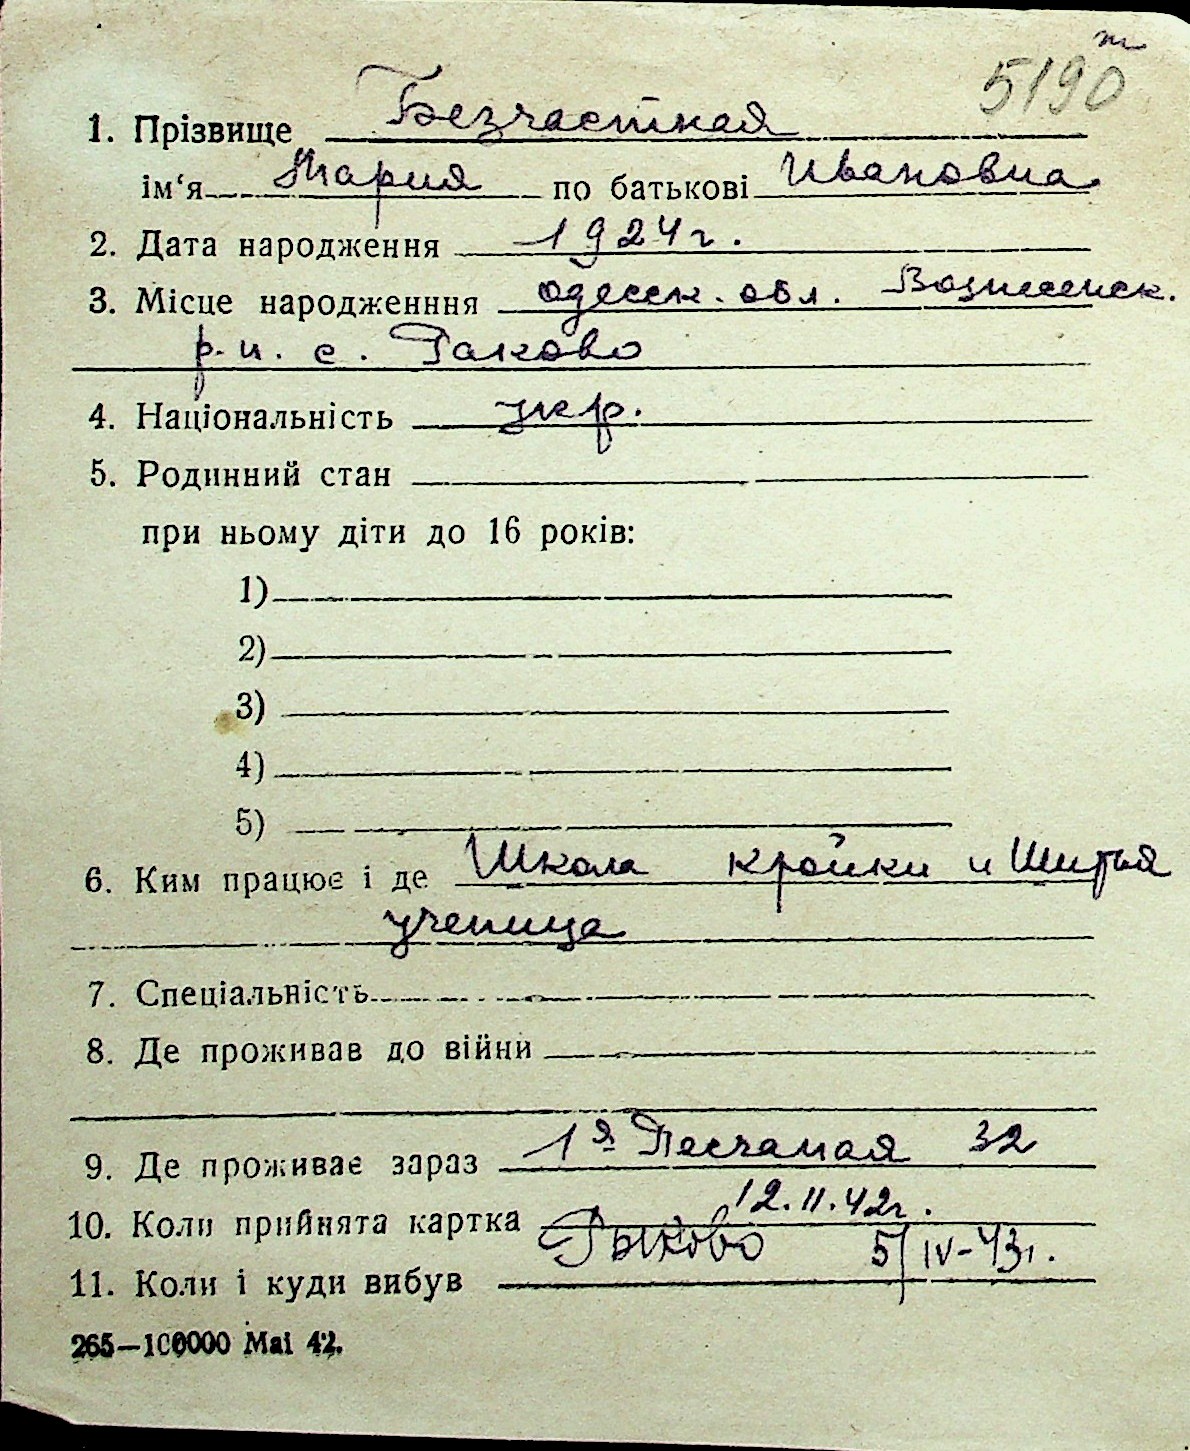 5190
1. Прізвище Безчастная
ім‘я Мария по батькові Ивановна
2. Дата народження 1924 г.
3. Місце народженння одесск. обл. Вознесенск.
р-н. с. Раково
4. Національність укр.
5. Родинний стан
при ньому діти до 16 років:
1)
2)
3)
4)
5)
6. Ким працює і де Школа кройки и Шитья
ученица
7. Спеціальність
8. Де проживав до війни
9. Де проживає зараз 1я Песчаная 32
10. Коли прийнята картка 12.II.42г.
11. Коли і куди вибув Рыково 5/IV-43г.
265—100000 Mai 42.